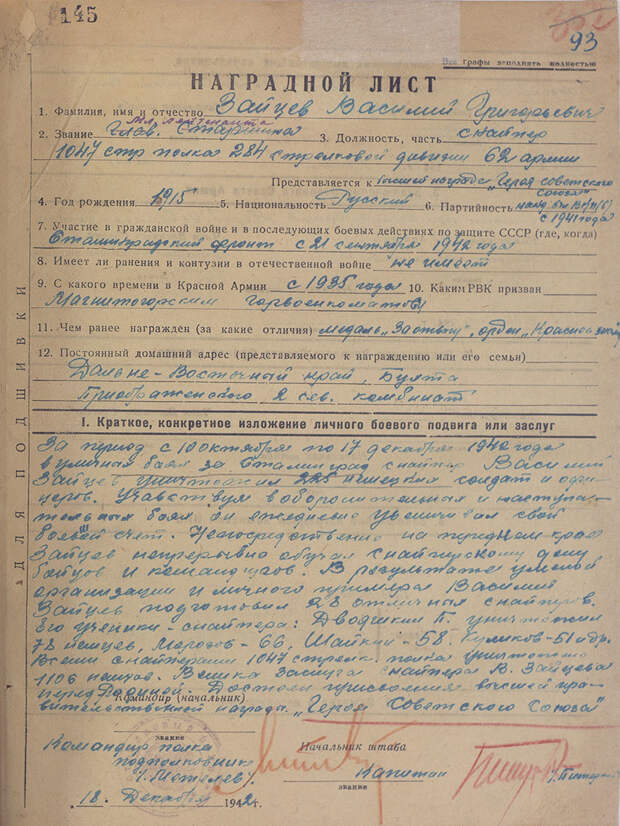 145
93
Все графы заполнять полностью
НАГРАДНОЙ ЛИСТ
1. Фамилия, имя и отчество Зайцев Василий Григорьевич
мл. лейтенанта
2. Звание Глав. Старшина 3. Должность, часть снайпер
1047 стр полка 284 стрелковой дивизии 62 армии
Представляется к высшей награде "Героя советского
союза"
4. Год рождения 1915 5. Национальность Русский 6. Партийность
с 1941 года
7. Участие в гражданской войне и в последующих боевых действиях по защите СССР (где, когда)
Сталинградский фронт с 21 сентября 1942 года
8. Имеет ли ранения и контузии в отечественной войне не имеет
9. С какого времени в Красной Армии с 1935 года 10. Каким РВК призван
Магнитогорским горвоенкоматом
11. Чем ранее награжден (за какие отличия) медаль "За отвагу", орден "Красное
12. Постоянный домашний адрес (представляемого к награждению или его семьи)
Дальне-Восточный край, Бухта
Приображенского
I. Краткое, конкретное изложение личного боевого подвига или заслуг
За период с 10 октября по 17 декабря 1942 года
в уличных боях за Сталинград снайпер Василий
Зайцев уничтожил 225 немецких солдат и офи-
церов. Учавствуя в оборонительных и наступа-
тельных боях он ежедневно увеличивал свой
боевой счет. Непосредственно на переднем крае
Зайцев непрерывно обучал снайперскому делу
бойцов и командиров. В результате умелой
организации и личного примера Василий
Зайцев подготовил 28 отличных снайперов.
Его ученики-снайпера: Двояшкин П. уничтожил
78 немцев, Морозов-66, Шайкин-58, Куликов-51 и др.
Всеми снайперами 1047 стрелк. полка уничтожено
1106 немцев. Велика заслуга снайпера В. Зайцева
перед Родиной. Достоин присвоения высшей пра-
вительственной награды "Героя Советского Союза"
Командир (начальник)
звание
Командир полка
подполковник
/Метелев/
Начальник штаба
Капитан
звание
18 Декабря 1942 г.
ДЛЯ ПОДШИВКИ